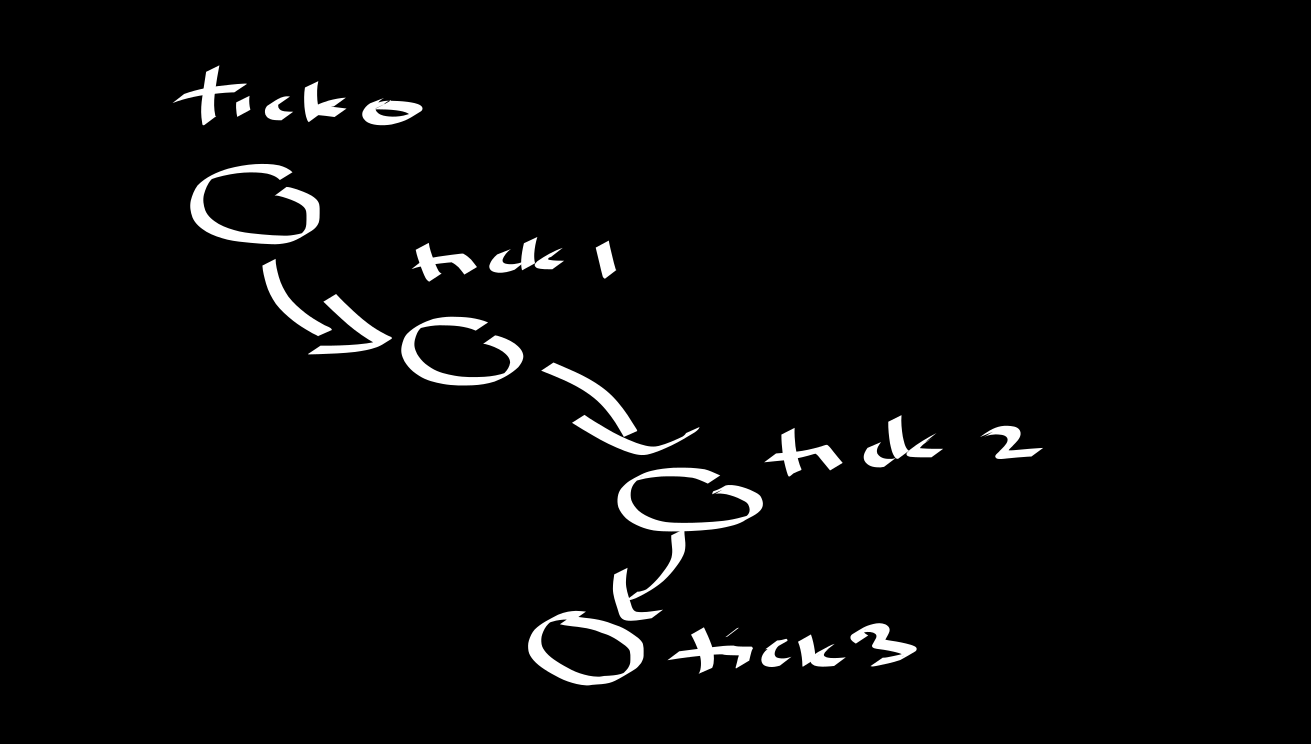 tick 0
tick 1
tick 2
tick 3